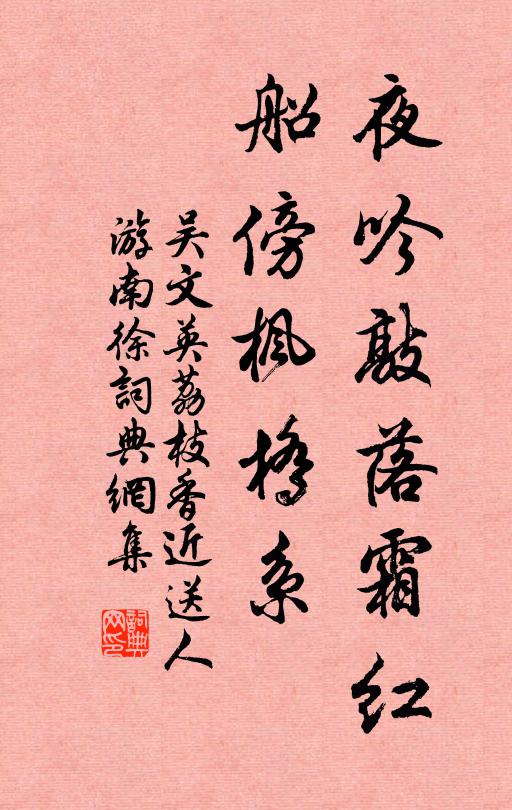 夜吟敲落霜红
船傍枫橋系
吴文英荔枝香近送人
游南徐詞典網集
詞典
网印